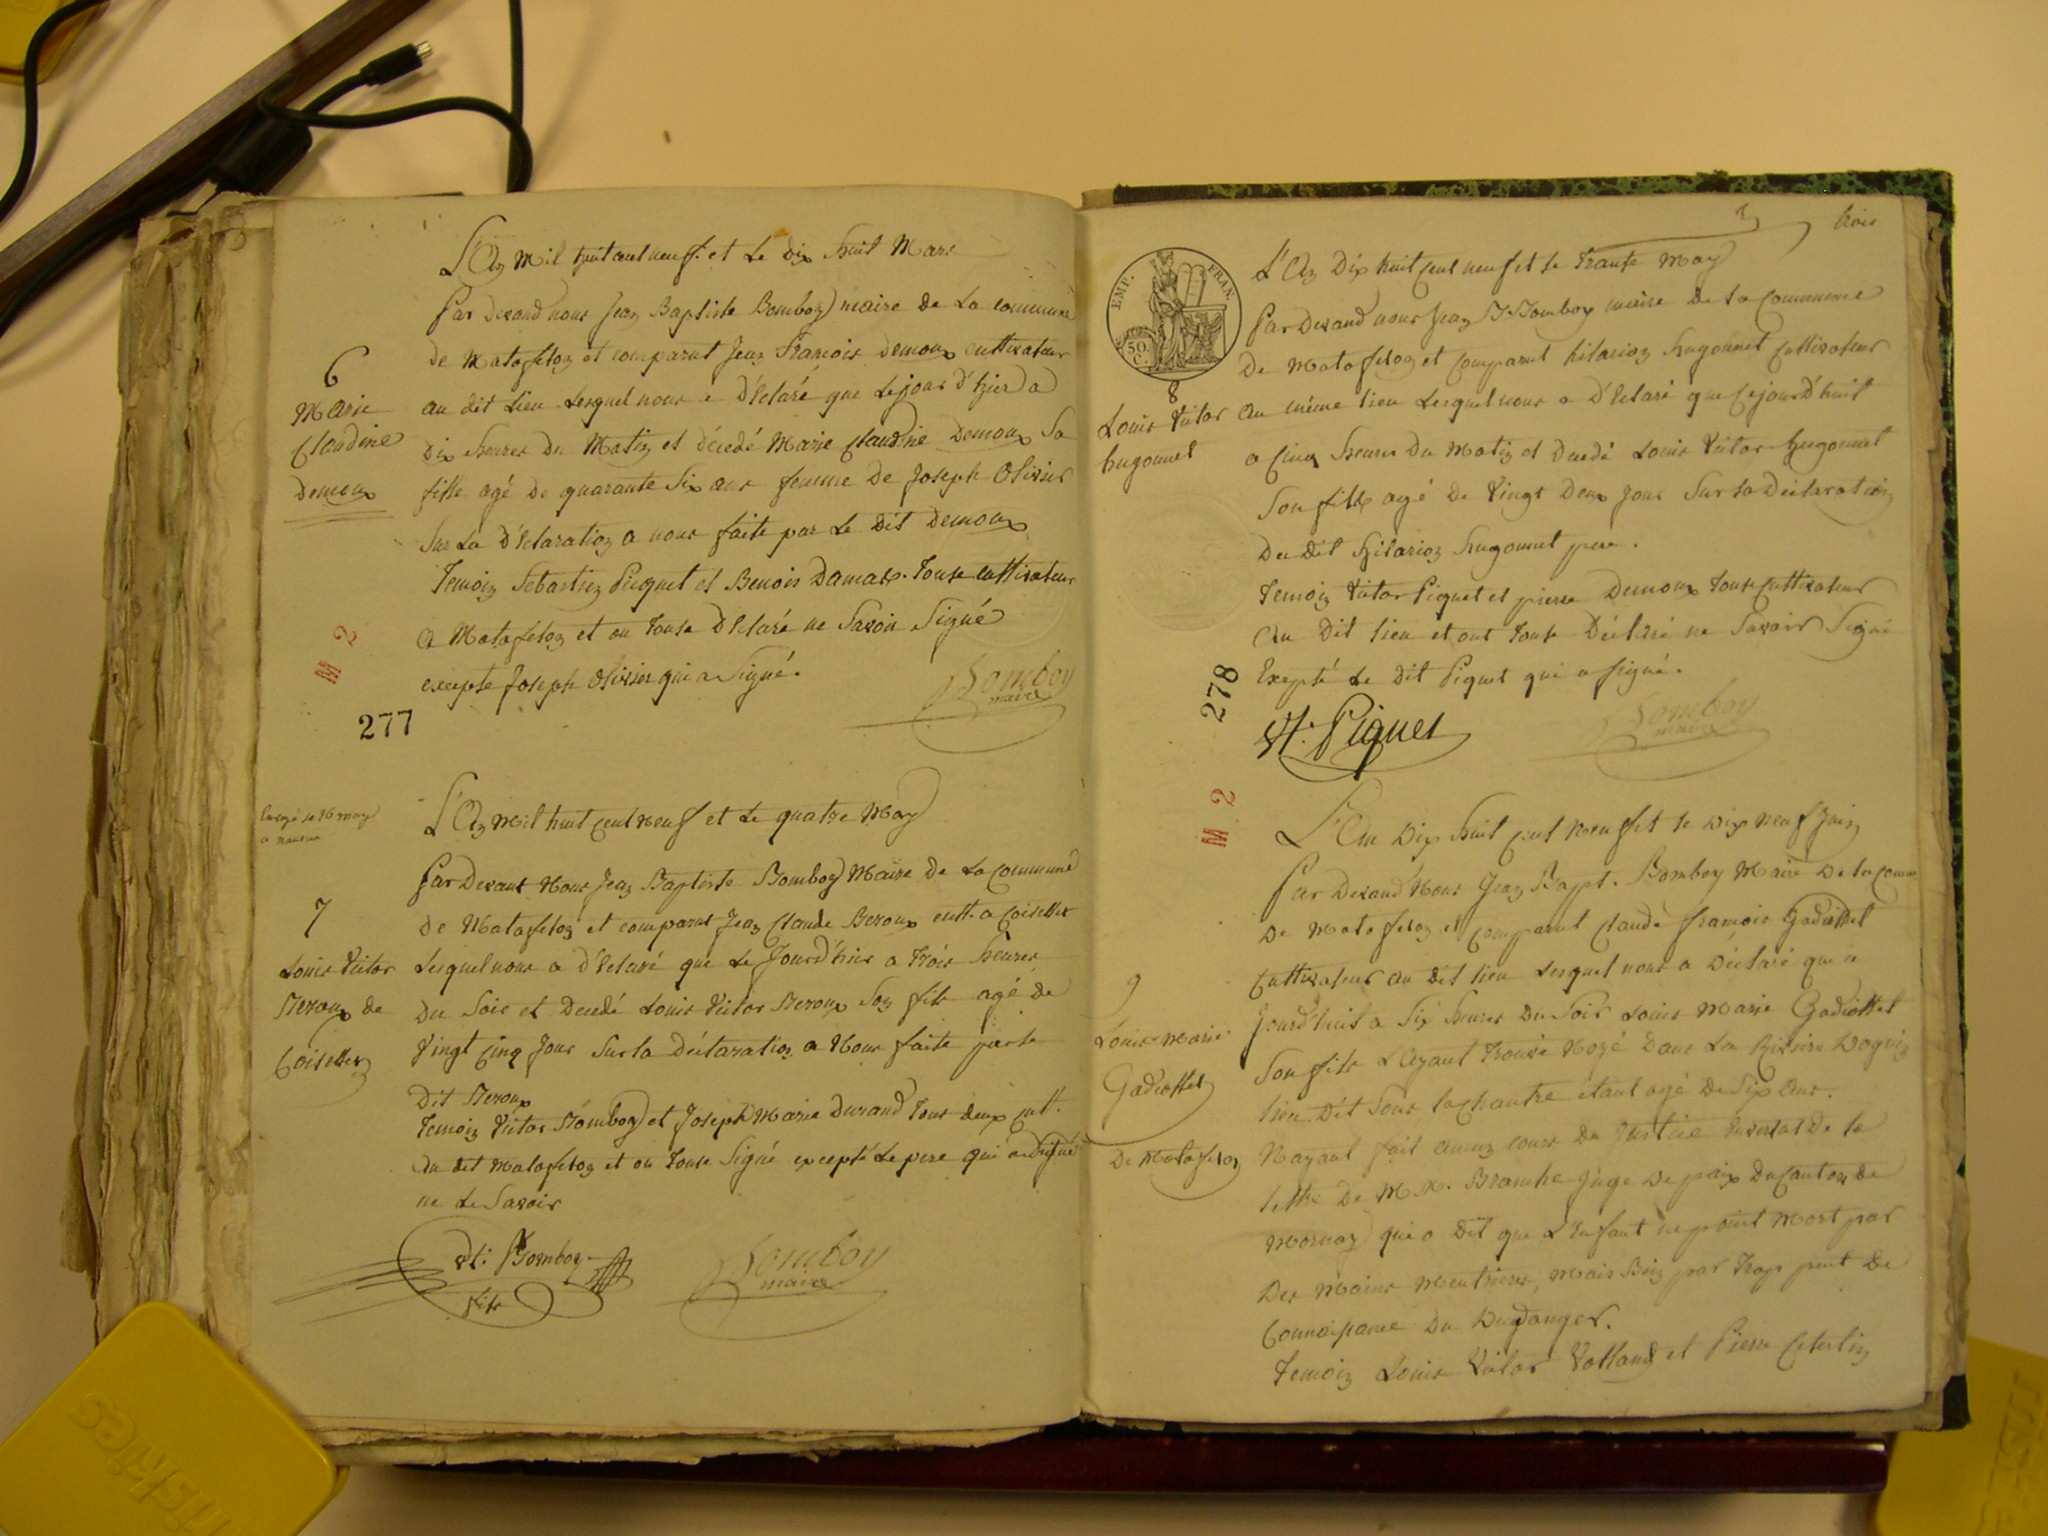 L'An Mil huit cent neuf et Le Dix huit Mars
Par Devand nous Jean Baptiste Bomboy maire de La commune
de Matafelon et comparut Jean Francois Demoux cultivateur
6
Marie
Claudine
Demoux
au dit Lieu Lesquel nous a D'Eclaré que Le jour D'hier a
Dix heures Du Matin et décédé Marie Claudine Demoux Sa
fille agé De quarante Six ans femme De Joseph Olivier
Sur La D'Eclaration a nous faite par Le Dit Demoux
Temoin Sebastien Piquet et Benois Damas. Touse cultivateur
a Matafelon et on Touse D'Eclaré ne Savoir Signé
excepte Joseph Olivier qui a Signé.
Bomboy
maire
M 2
277
L'An Mil huit Cent Neuf et Le quatre May
a nantua
Par Devant Nous Jean Baptiste Bomboy Maire de La Commune
De Matafelon et comparut Jean Claude Beroux cult. a Coiselet
7
Louis Victor
Beroux de
Coiselet
Lesquel nous a D'Eclaré que Le Jourd'hier a Trois heures
Du Soir et Decedé Louis Victor Beroux Son fils agé de
Vingt Cinq Jour Sur la Déclaration a Nous faite par le
Dit Beroux
Temoin Victor Bomboy et Joseph Marie Durand Tous deux cult.
Du dit Matafelon et on Touse Signé excepté Le pere qui a
ne Le Savoir
Vt. Bomboy
fils
Bomboy
maire
3 trois
EMP. FRAN.
50
C.
L'An Dix huit Cent neuf et le Trante May
Par Devand nous Jean B. Bomboy maire De la Commune
De Matafelon et Comparut hilarion hugonnet Cultivateur
8
Louis Victor
hugonnet
Au même lieu Lesquel nous a D'Eclaré que Cejourd'huit
a Cinq heures Du Matin et Decedé Louis Victor hugonnet
Son fils agé De Vingt Deux Jour Sur La Déclaration
Du Dit hilarion hugonnet pere.
Temoin Victor Piquet et pierre Demoux Touse Cultivateur
Au Dit lieu et ont Touse Déclaré ne Savoir Signé
Exepté Le Dit Piquet qui a signé.
Vt. Piquet
Bomboy
maire
278
M 2
L'An Dix huit Cent Neuf et le Dix Neuf Juin
Par Devand Nous Jean Bapt. Bomboy Maire De la Comm
De Matafelon et Comparut Claude francois Gadiollet
Cultivateur au dit lieu Lesquel nous a Déclaré que
9
Louis Marie
Gadiollet
De Matafelon
Jourd'huit a Six heures Du Soir Louis Marie Gadiollet
Son fils L'Ayant Trouvé Noyé Dans La Riviere
lieu Dit Sous la Chautre étant agé De Six ans.
Nayant fait aucun cours De Justice La
lettre De M. Branche Juge De paix Du Canton De
qui a Dit que L'Enfant ne point Mort par
Des Mains Meutrieres, Mais Bien par Trop peut De
Connaisance Du Dangers.
Temoin Louis Victor Volland et Pierre